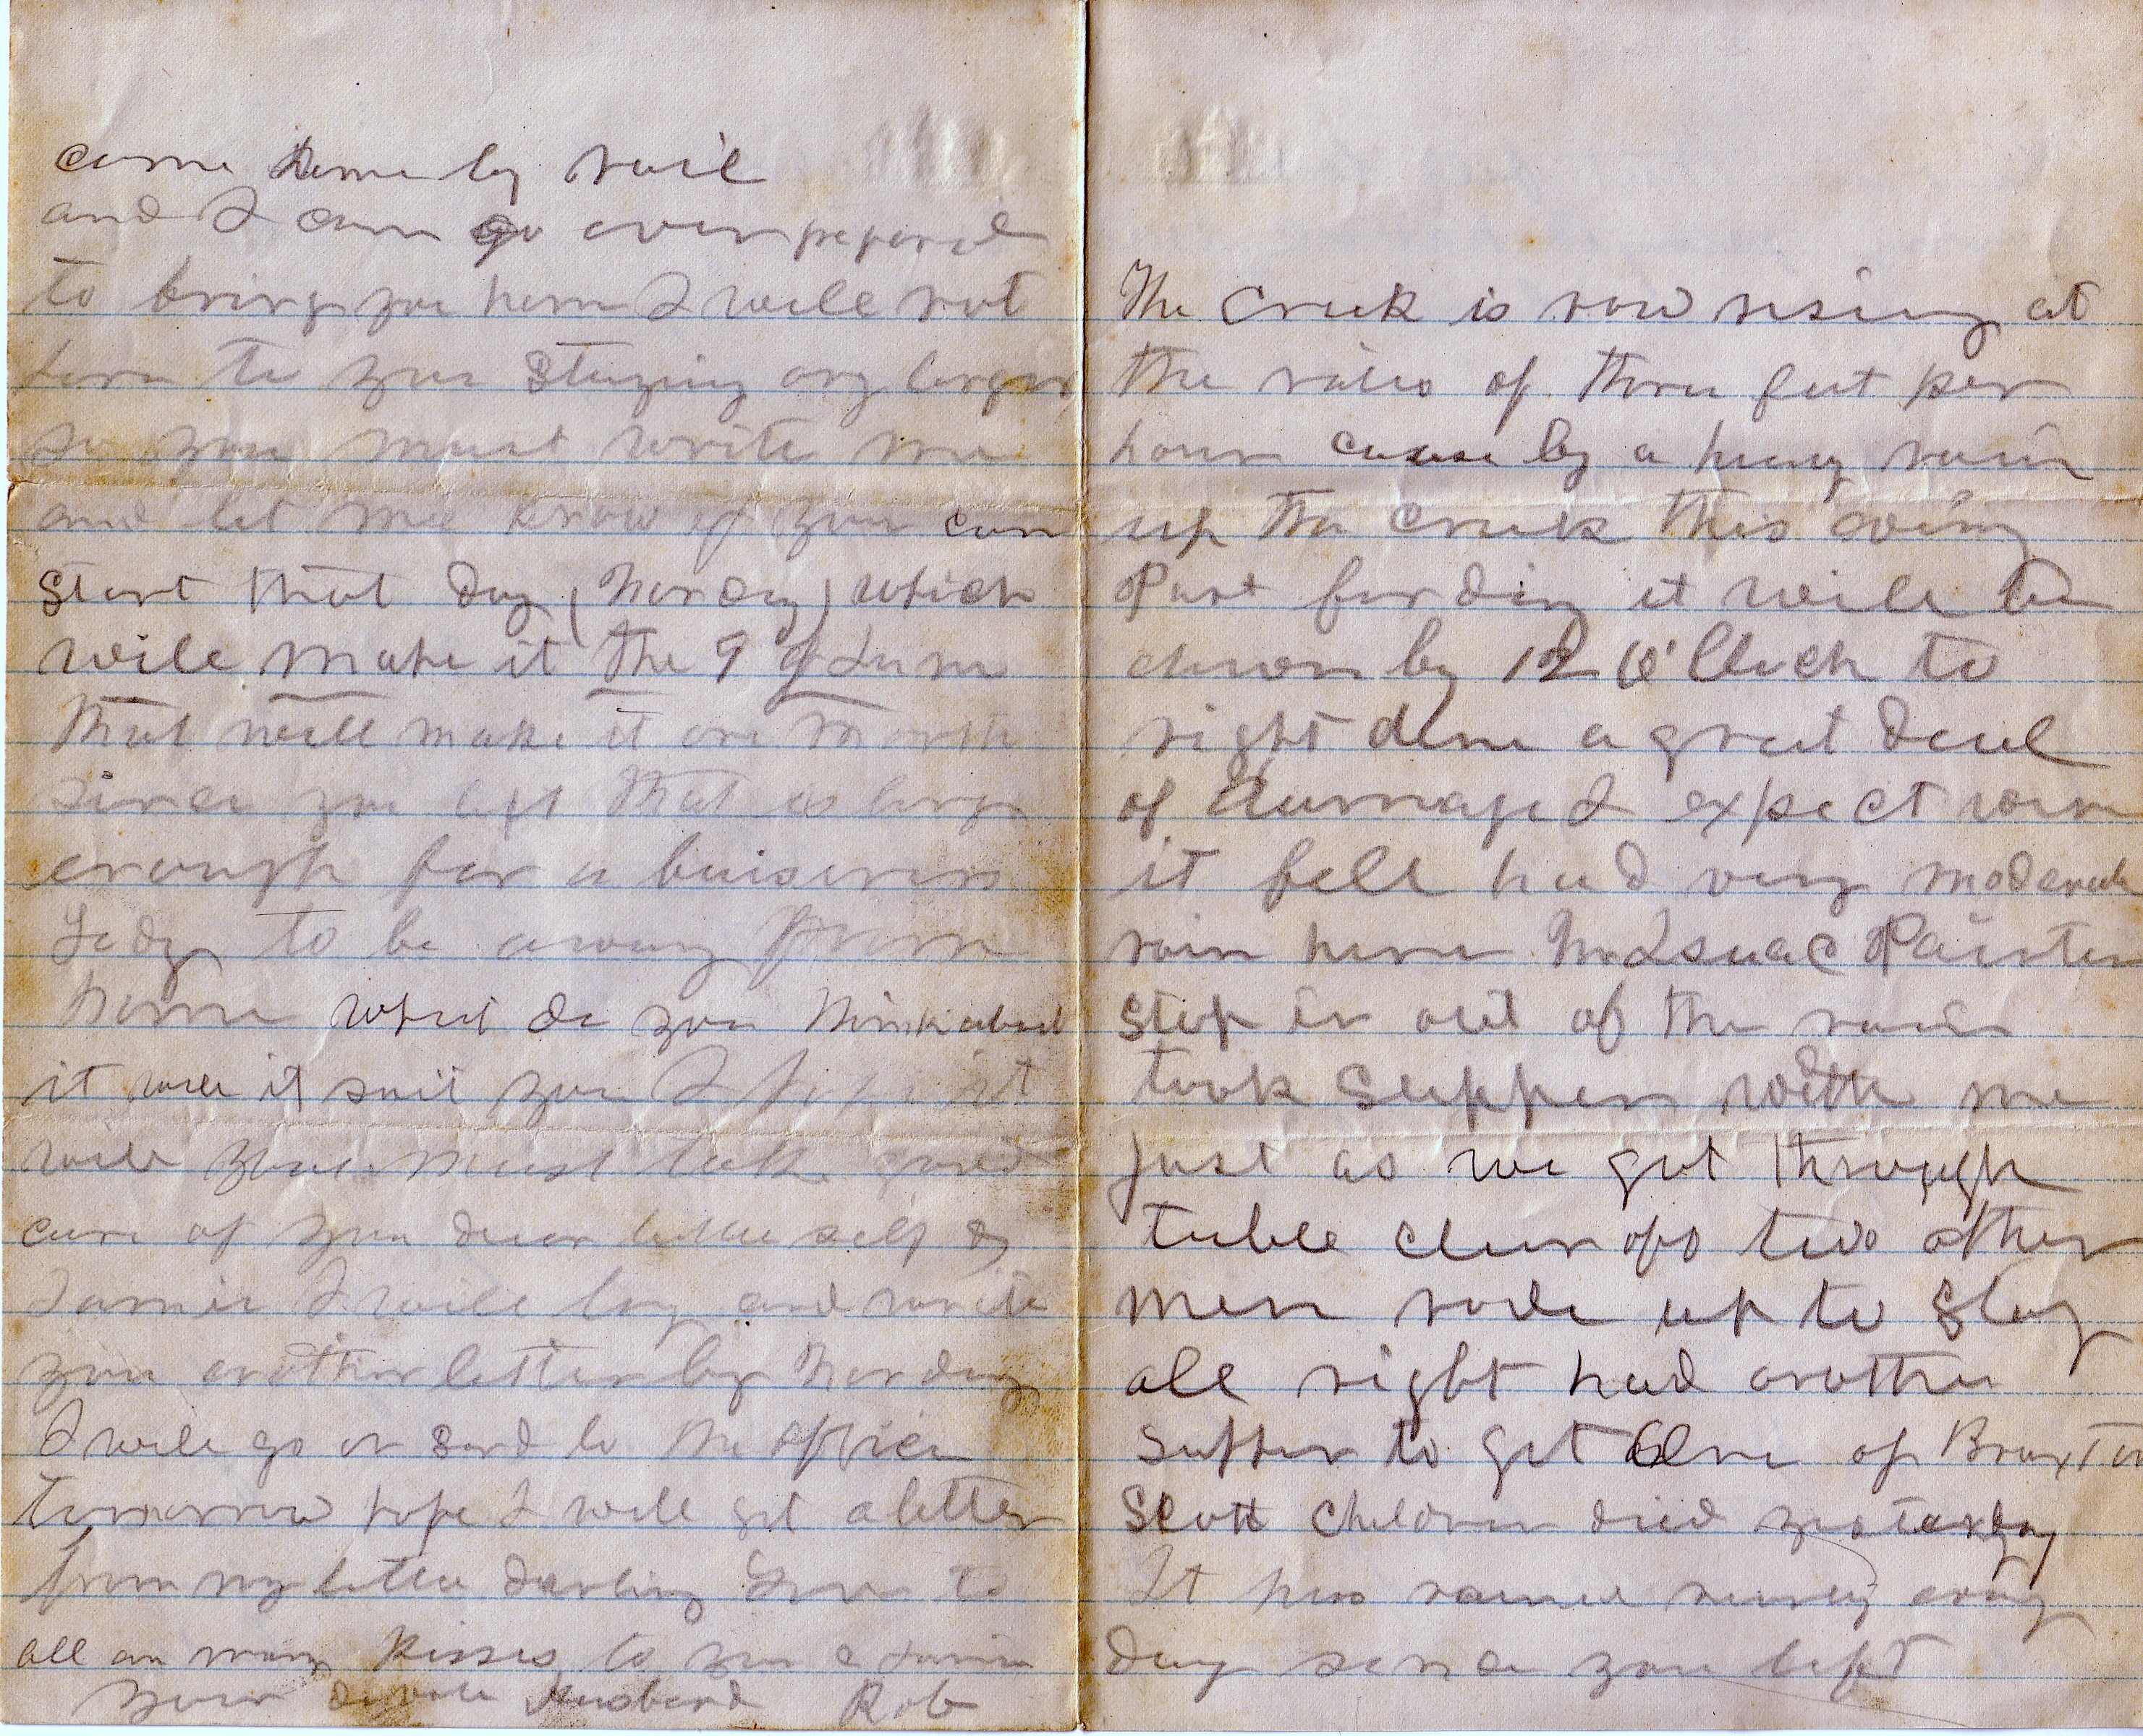 come home by rail
and I can go over prepared
to bring you home I will not
to your Staying any longer
so you must write me
and let me know if you can
Start that day (Monday) which
will make it the 9 of June
that will make it one month
since you left that is long
enough for a buisiness
Lady to be away from
home what do you think about
it will it suit you I hope it
will you must take good
care of your dear little self &
Jamie I will try and write
you another letter by Monday
I will go or send to the office
tomorrow hope I will get a letter
from my little darling Love to
all an many Kisses to you & Jamie
your devote Husband Rob
The Creek is now rising at
the rates of three feet per
hour cause by a heavy rain
up the creek this eving
Past fording it will be
down by 12 O'Clock to
night done a great deal
of damage I expect where
it fell had very moderate
rain here Mr Isaac Painter
Step in out of the rain
took Supper with me
just as we got through
table clear off two other
men rode up to Stay
all night had another
supper to get One of Braxton
Scott Children died yestarday
It has rained nearly evry
day since you left